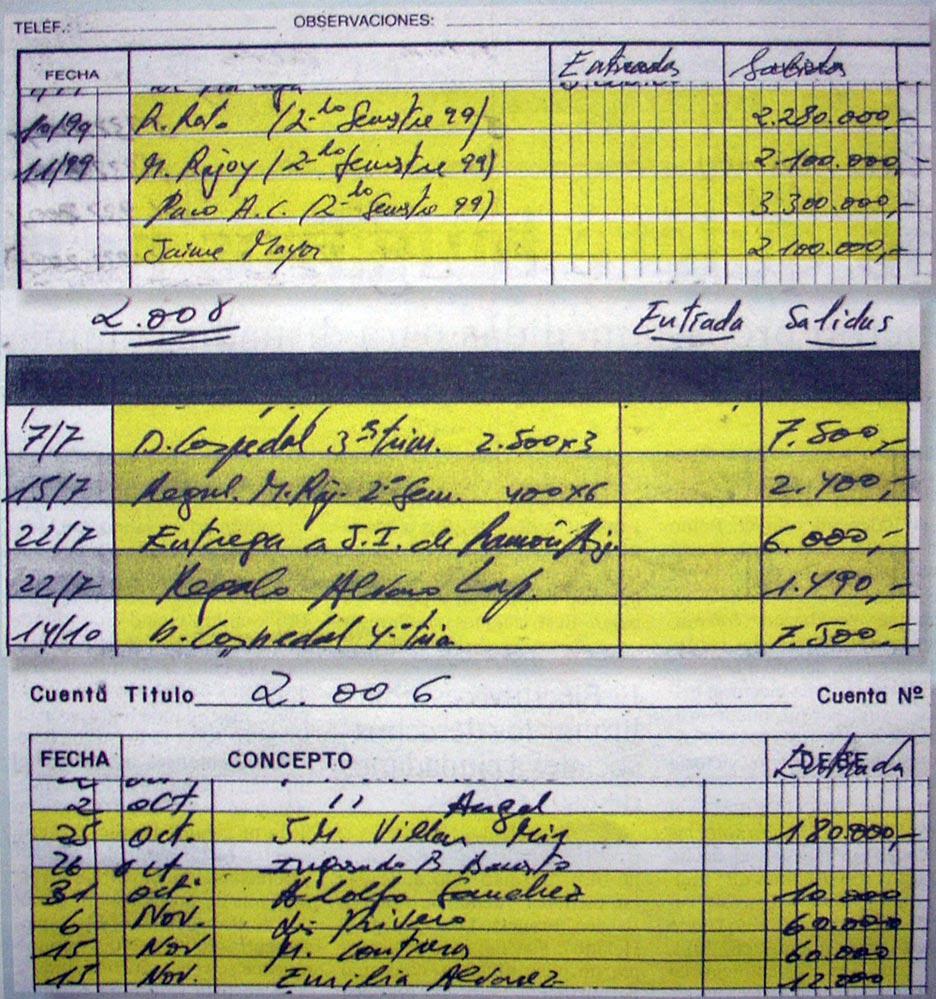 TELÉF.: OBSERVACIONES:
FECHA Entradas Salidas
10/99 R. Rato (2-do Semestre 99) 2.280.000,-
11/99 M. Rajoy (2-do Semestre 99) 2.100.000,-
Paco A.C. (2-do Semestre 99) 3.300.000,-
Jaime Mayor 2.100.000,-
2.008 Entrada Salidas
7/7 D. Cospedal 3º trim. 2.500x3 7.500,-
15/7 Regul. M. Raj. 2º Sem. 400x6 2.400,-
22/7 Entrega a J.I. de 6.000,-
22/7 Regalo Alvaro Lap. 1.490,-
14/10 D. Cospedal 4º trim. 7.500,-
Cuenta Titulo 2.006 Cuenta Nº
FECHA CONCEPTO DEBE Entrada
2 oct. " Angel
25 oct. J.M. Villar Mir 180.000,-
26 oct Ingresado B.
31 oct. Adolfo Sanchez 10.000
6 Nov. Rivero 60.000
15 Nov M. Contreras 60.000
15 Nov. Emilio Alvarez 12.000